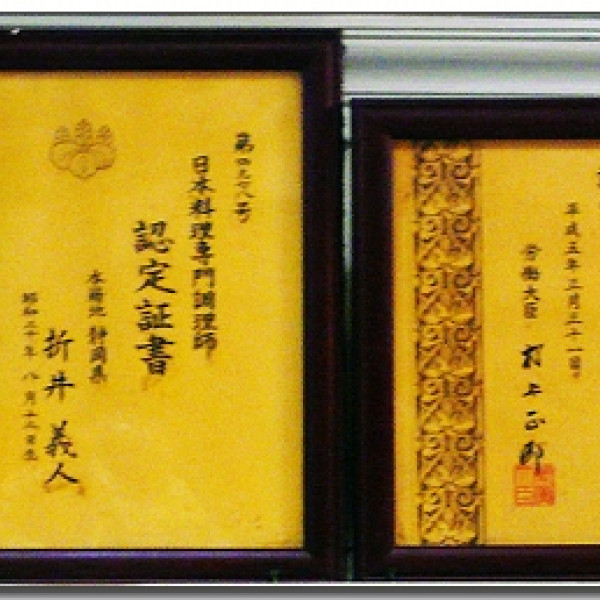 第四三六八号
日本料理専門調理師
認定証書
本籍地 静岡県
折井義人
昭和三十年八月十二日生
平成五年三月三十一日
労働大臣 村上正邦